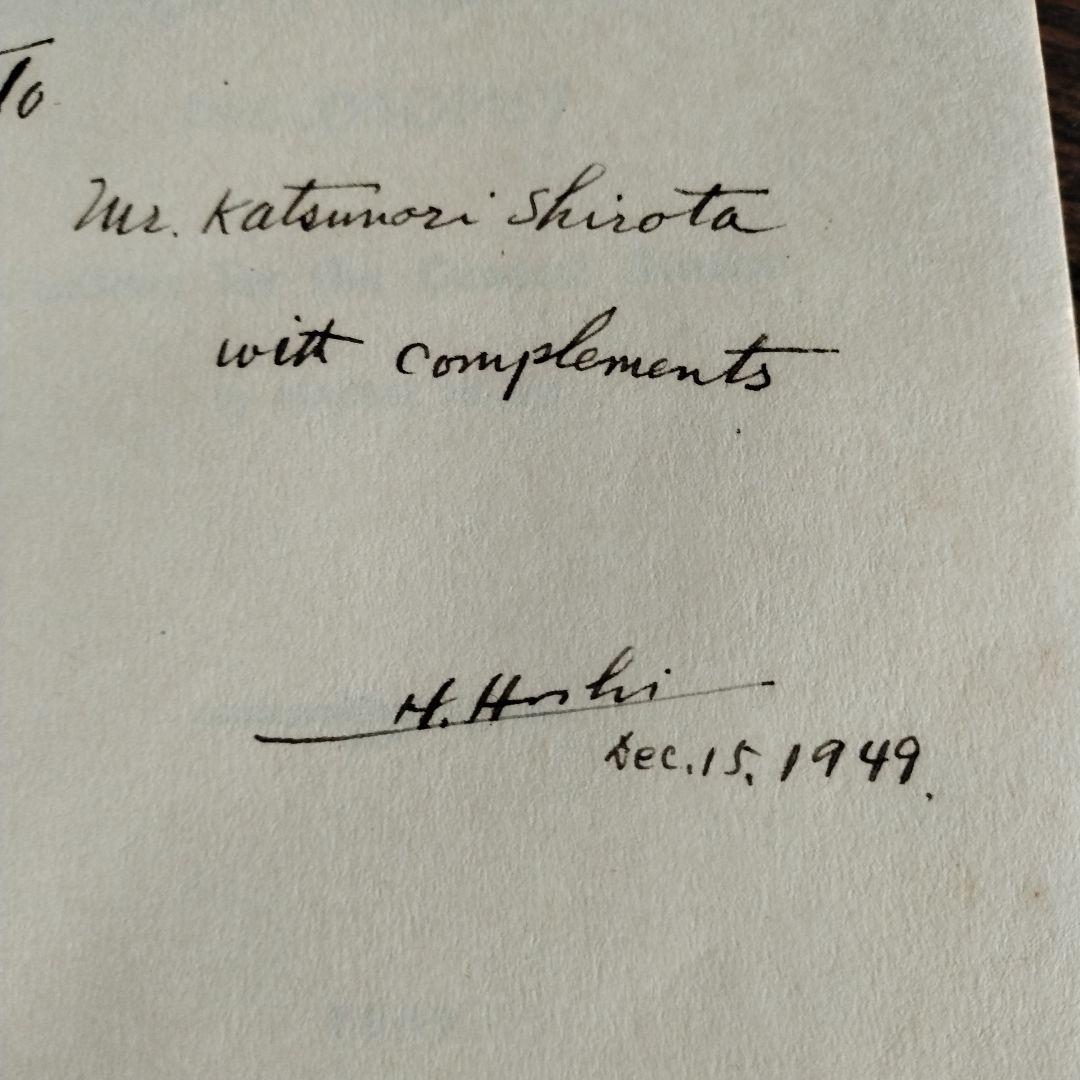 To
Mr. Katsunori Shirota
with complements
H. Hoshi
Dec. 15, 1949.